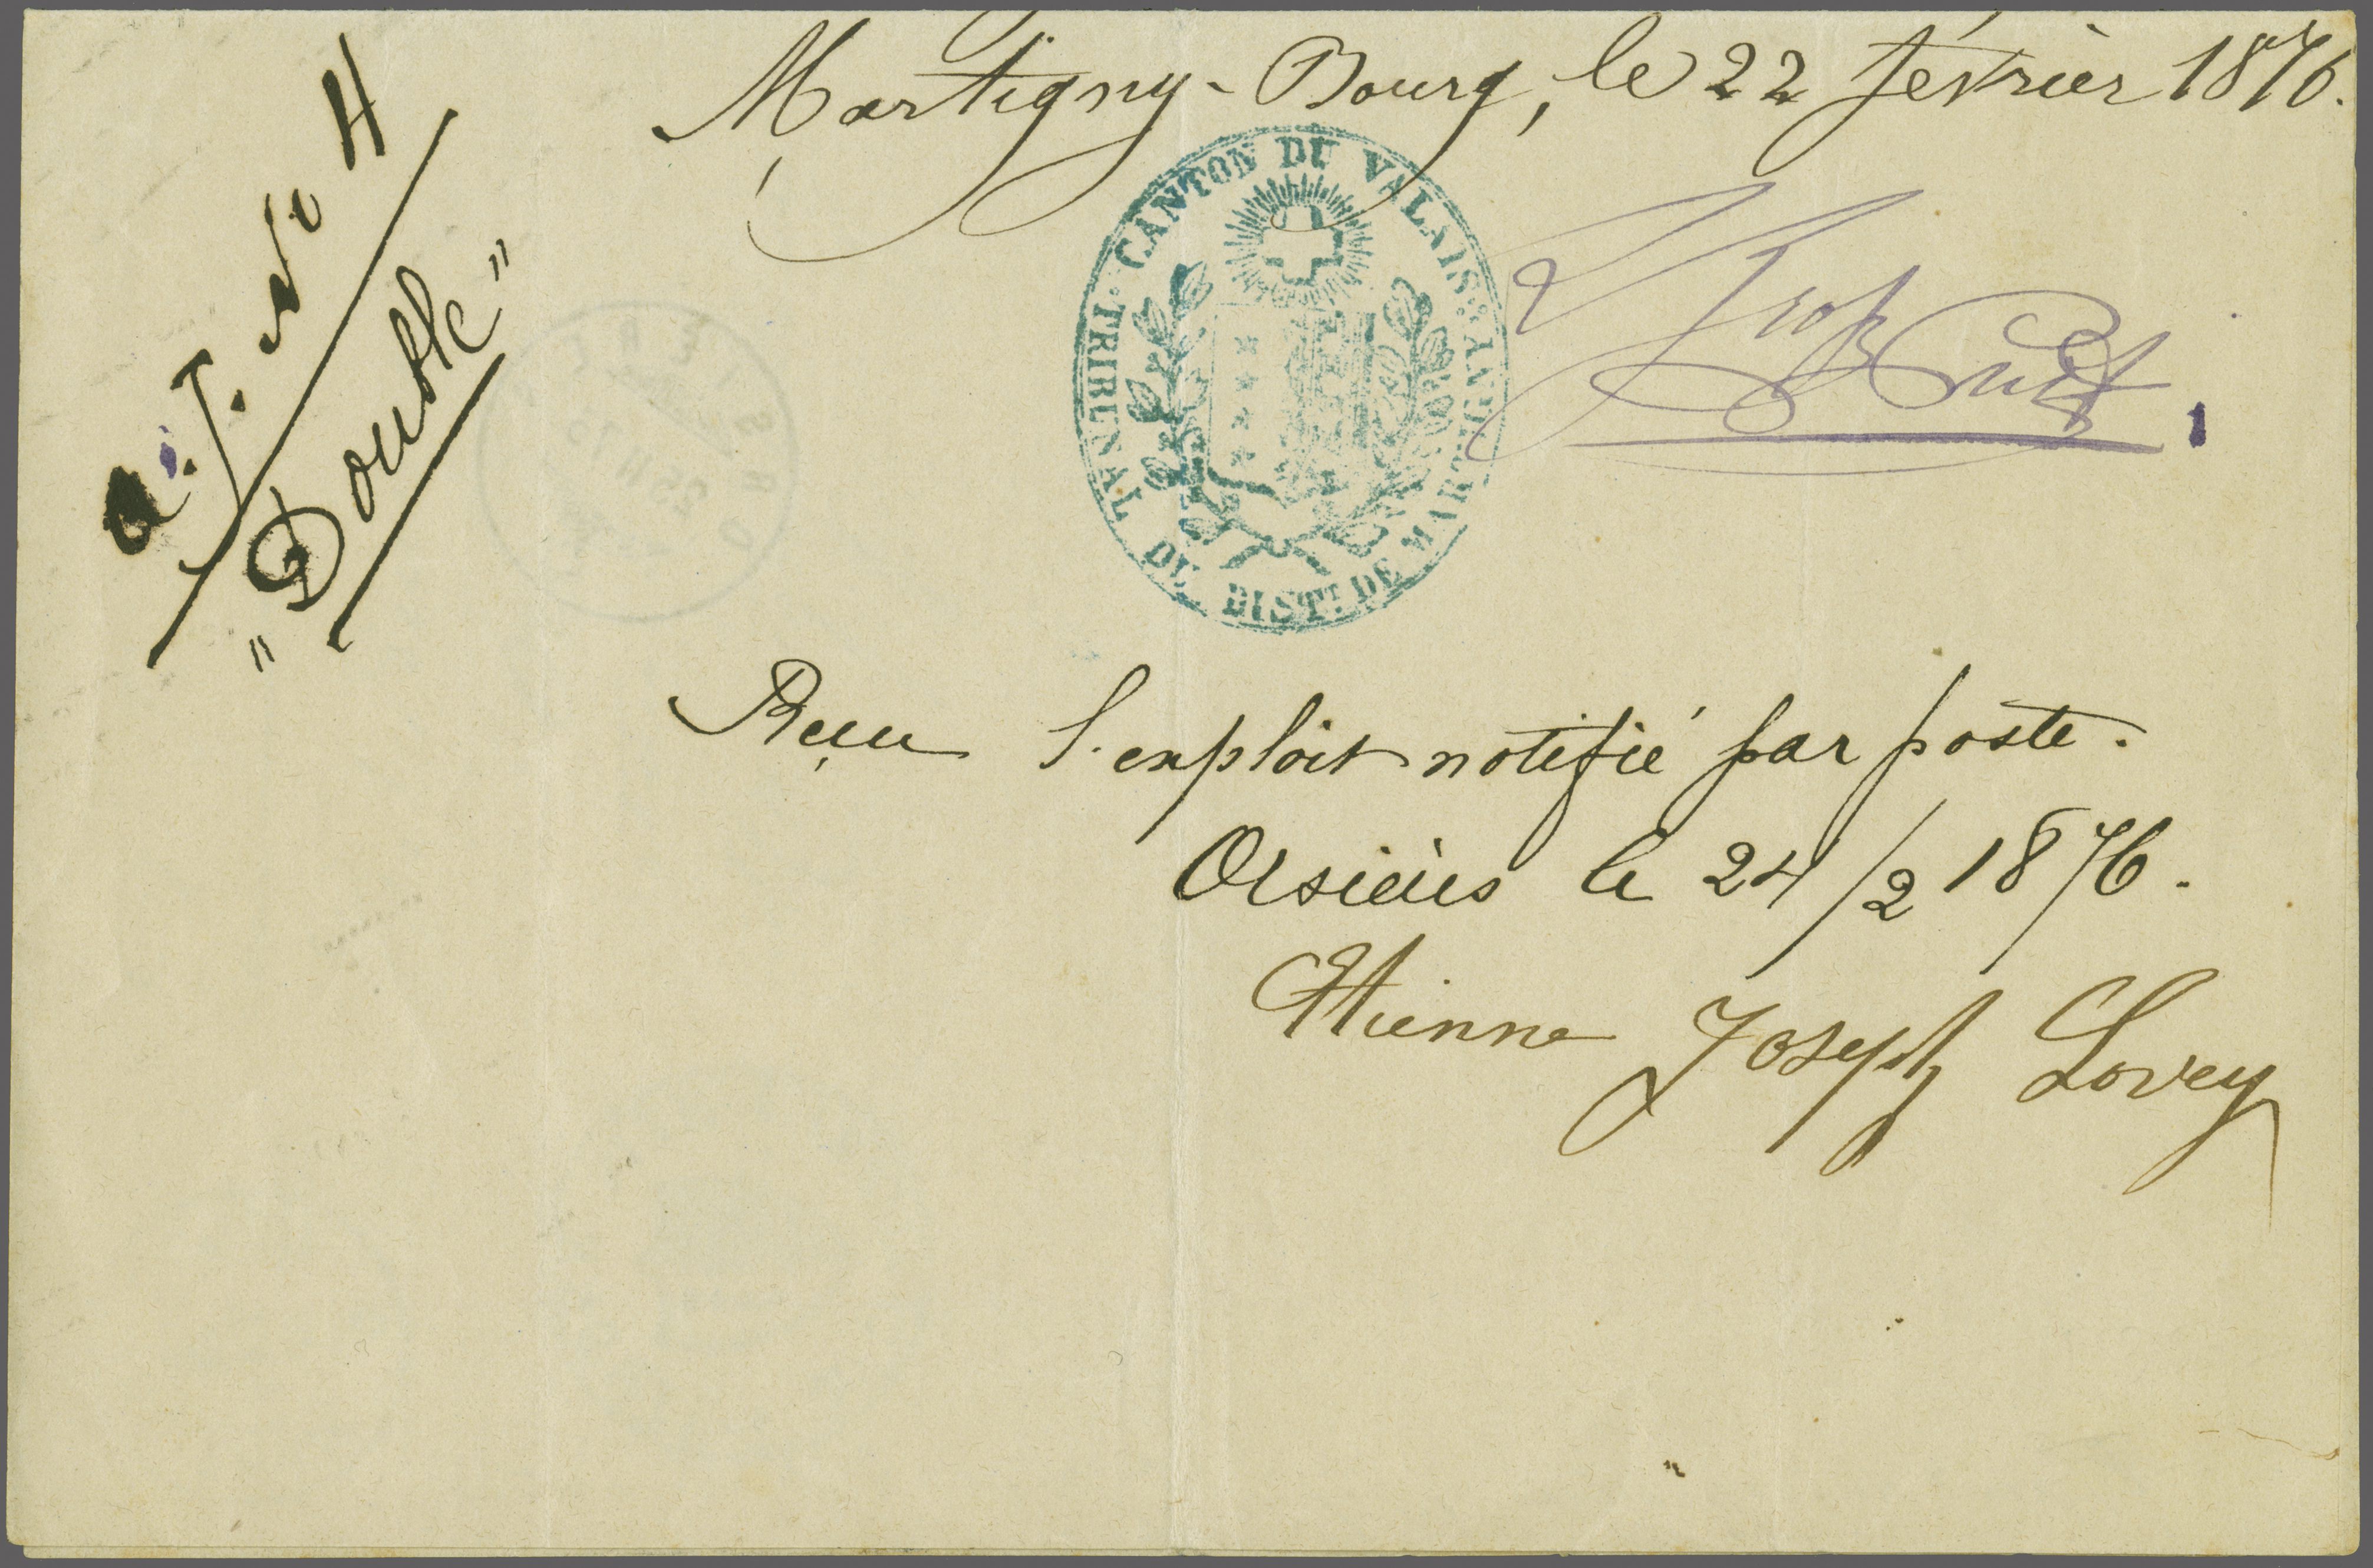 Martigny-Bourg, le 22 février 1876.
a. J. No 4
"Double"
CANTON DU VALAIS
TRIBUNAL DU DISTT. DE MARTIGNY
Reçu l'exploit notifié par poste.
Orsières le 24/2 1876.
Etienne Joseph Lovey